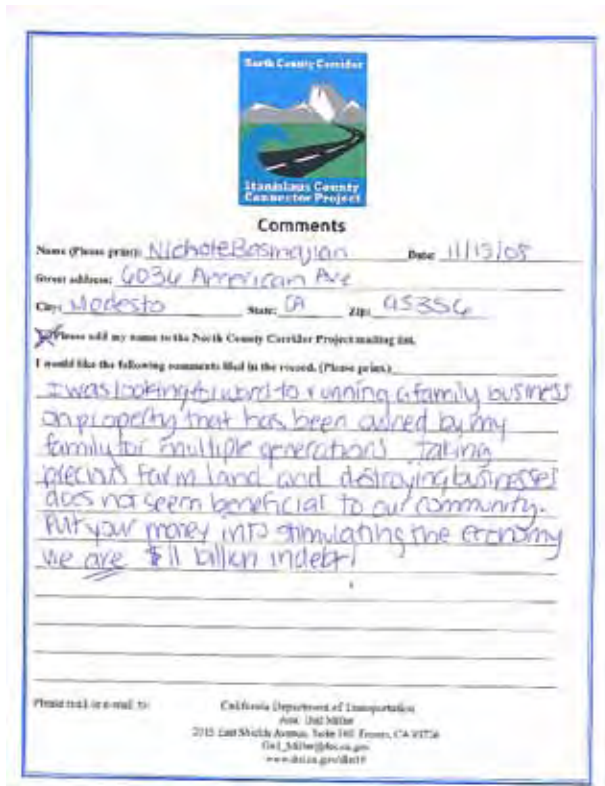 North County Corridor
Stanislaus County
Connector Project
Comments
Name (Please print): Nichole Basmajian Date: 11/13/08
Street address: 6036 American Ave
City: Modesto State: CA Zip: 95356
Please add my name to the North County Corridor Project mailing list.
I would like the following comments filed in the record. (Please print.)
I was looking forward to running a family business
on property that has been owned by my
family for multiple generations. Taking
precious farm land and destroying businesses
does not seem beneficial to our community.
Put your money into stimulating the economy
we are $11 billion in debt!
Please mail or e-mail to: California Department of Transportation
Attn: Gail Miller
2015 East Shields Avenue, Suite 100 Fresno, CA 93726
Gail_Miller@dot.ca.gov
www.dot.ca.gov/dist10